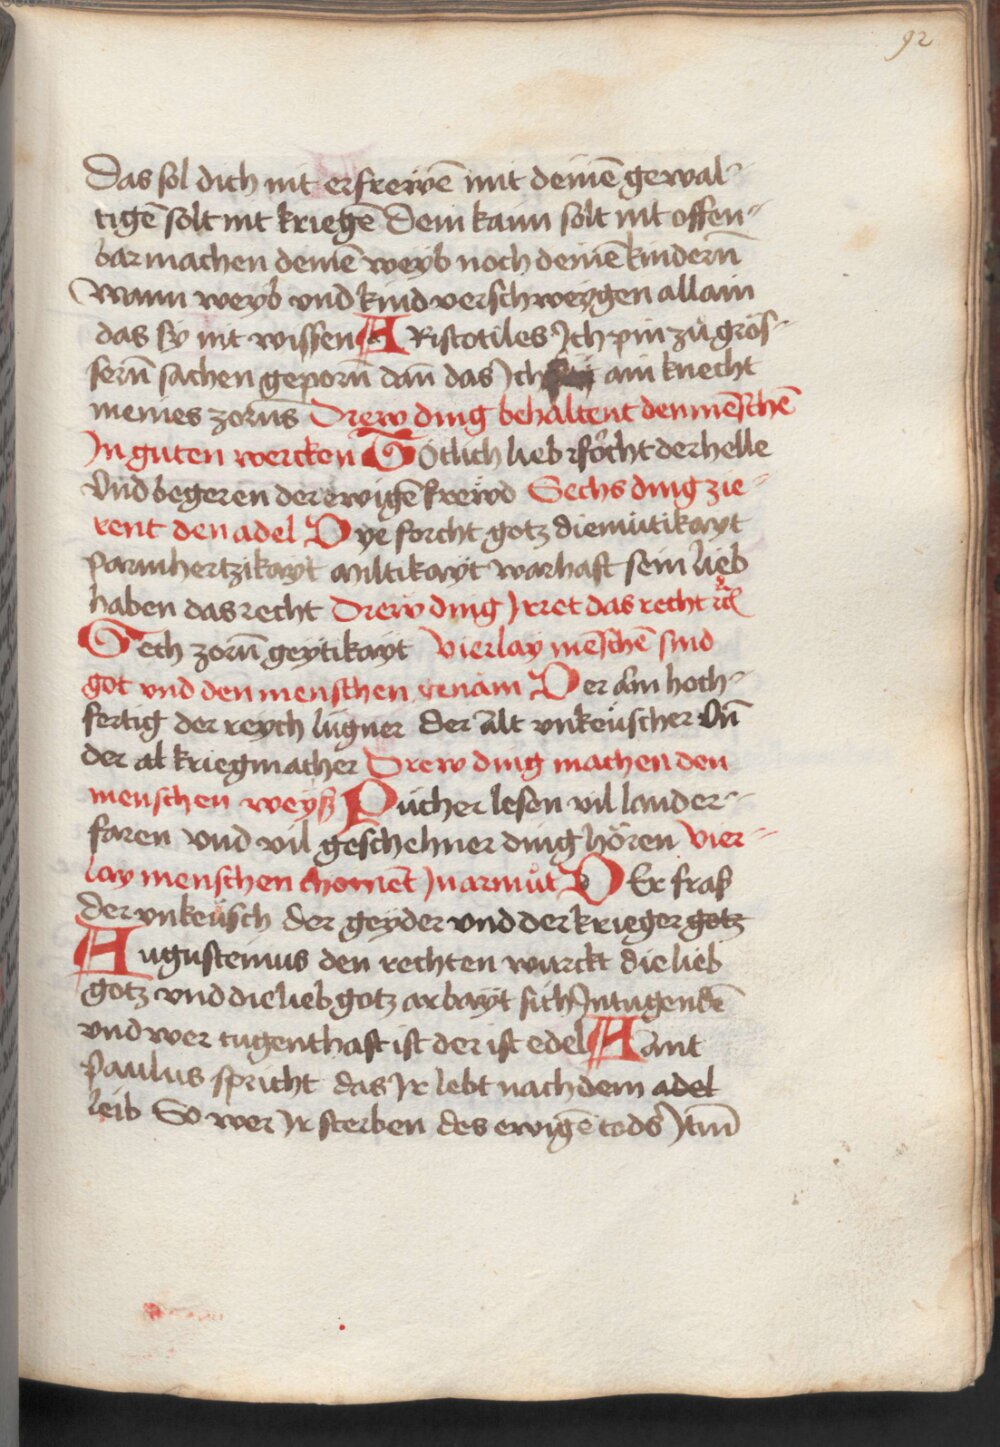 92
Das sol dich nit erfrewē mit deinē gewal-
tigē solt nit kriegē Dein kainn solt nit offen-
bar machen deinē weyb noch deinē kindern̄
Wann weyb vnd kind verschweygen allain
das sy nit wissen ARistotiles Jch pin zů grös-
sern̄ sachen geporn̄ dan̄ das Jch ain knecht
meines zorns Drew ding behaltent den mēschē
Jn guten wercken Götlich lieb vorcht der helle
Vnd begeren der ewigē frewd Sechs ding zie-
rent den adel Dye forcht gotz diemütikayt
parmhertzikayt miltikayt warhaft sein lieb
haben das recht Drew ding Jrret das recht
Sech zorn̄ geytikayt Vierlay mēschē sind
got vnd den menschen vnäm Der arm hoch-
fertig der reych lügner der alt vnkeüscher Vn̄
der al kriegmacher Drew ding machen den
menschen weyß Pücher lesen vil lander-
faren vnd vil geschehner ding hören Vier-
lay menschen komēt Jn armůt DEr fraß
der vnkeüsch der geyder vnd der krieger gotz
Augusteinus den rechten wurckt die lieb
gotz vnd die lieb gotz arbayt sich Jn tugendē
vnd wer tugenthaft ist der ist edel
Paulus spricht das Jr lebt nach dem adel
leib So wer Jr sterben des ewigē tods Jtm̄